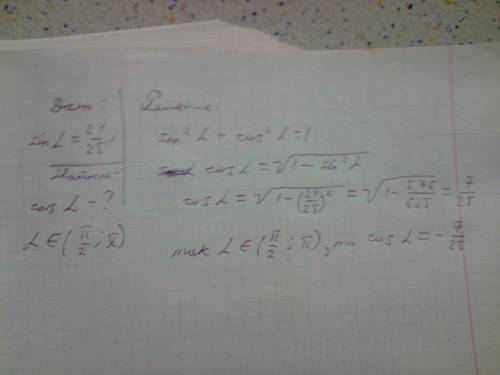 Дано:
sin L = 24/25;
Найти:
cos L - ?
L ∈ (π/2; π)
Решение:
sin² L + cos² L = 1
cos L = √(1 - sin² L)
cos L = √(1 - (24/25)²) = √(1 - 576/625) = 7/25
так L ∈ (π/2; π), то cos L = - 7/25